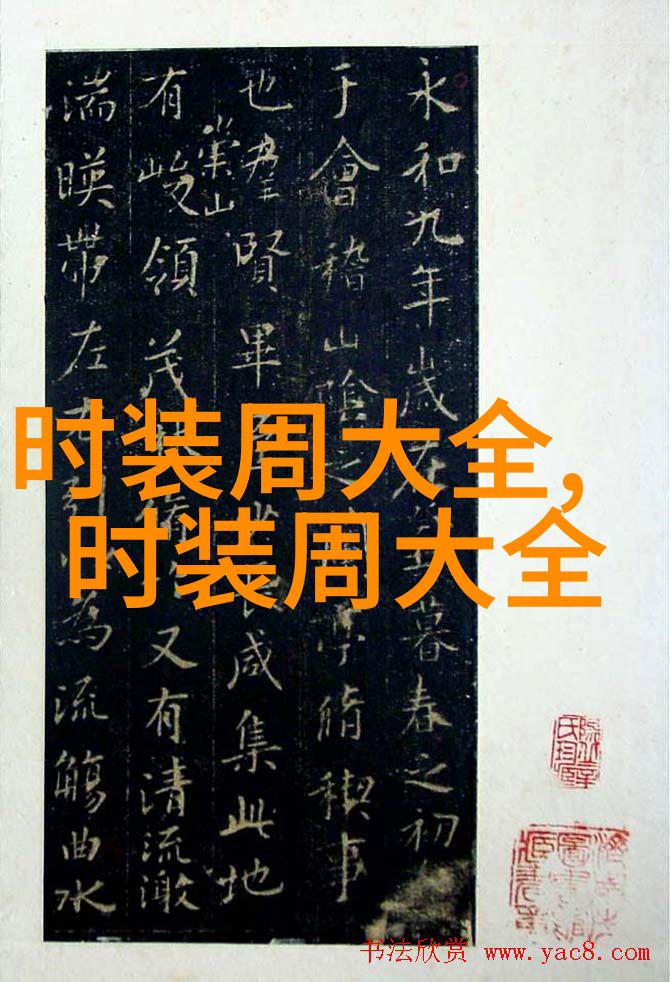 永和九年歲在癸暮春之初
于會稽山陰之亭脩稧事
也羣賢畢至長咸集此地
有崇山峻領茂林脩又有清流激
湍暎帶左右引為流觴曲水
时装周大全,
时装周大全
书法欣赏 www.yac8.com